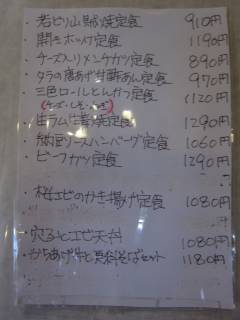 ・若どり山賊焼定食 910円
・開きホッケ定食 1190円
・チーズ入りメンチカツ定食 890円
・タラの唐あげ甘酢あん定食 970円
・三色ロールとんかつ定食 1120円
(チーズ・しそ・
・生ラム生姜焼定食 1290円
・納豆ソースハンバーグ定食 1060円
・ビーフカツ定食 1290円
・桜エビのかき揚げ定食 1080円
・穴子とエビ天丼 1080円
・からあげ丼と更科そばセット 1180円